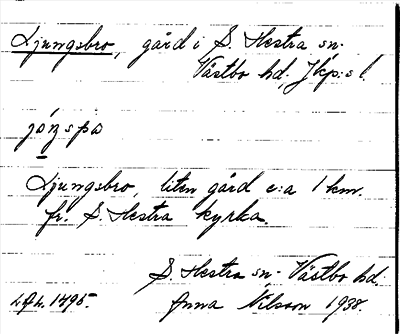 Ljungsbro, gård i S. Hestra sn.
Västbo hd, Jkp:s l.
Ljungsbro, liten gård c:a 1 km.
fr. S. Hestra kyrka.
S. Hestra sn. Västbo hd.
1495. Anna Nilsson 1938.